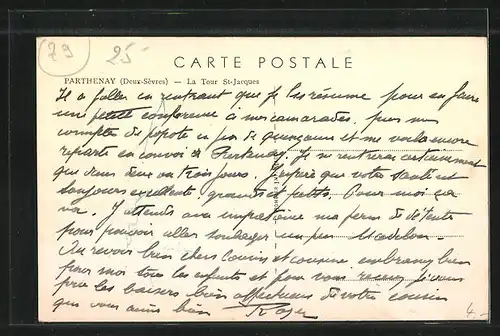 79
25
CARTE POSTALE
PARTHENAY (Deux-Sèvres) — La Tour St-Jacques
Il a fallu en rentrant que je les résume pour en faire
une petite conférence à mes camarades, puis mes
comptes de popote et me voilà encore
reparti en convoi à Parthenay. Je ne rentrerai certainement
que dans deux ou trois jours. J'espère que votre santé est
toujours excellente, grands et petits. Pour moi ça
va. J'attends avec impatience ma perm de détente
pour pouvoir aller soulager un peu Madelon.
Au revoir bien chers Cousin et cousine embrassez bien
pour moi tous les enfants et pour vous recevez je vous
prie les baisers bien affectueux de votre cousin
que vous aime bien Roger
4.-